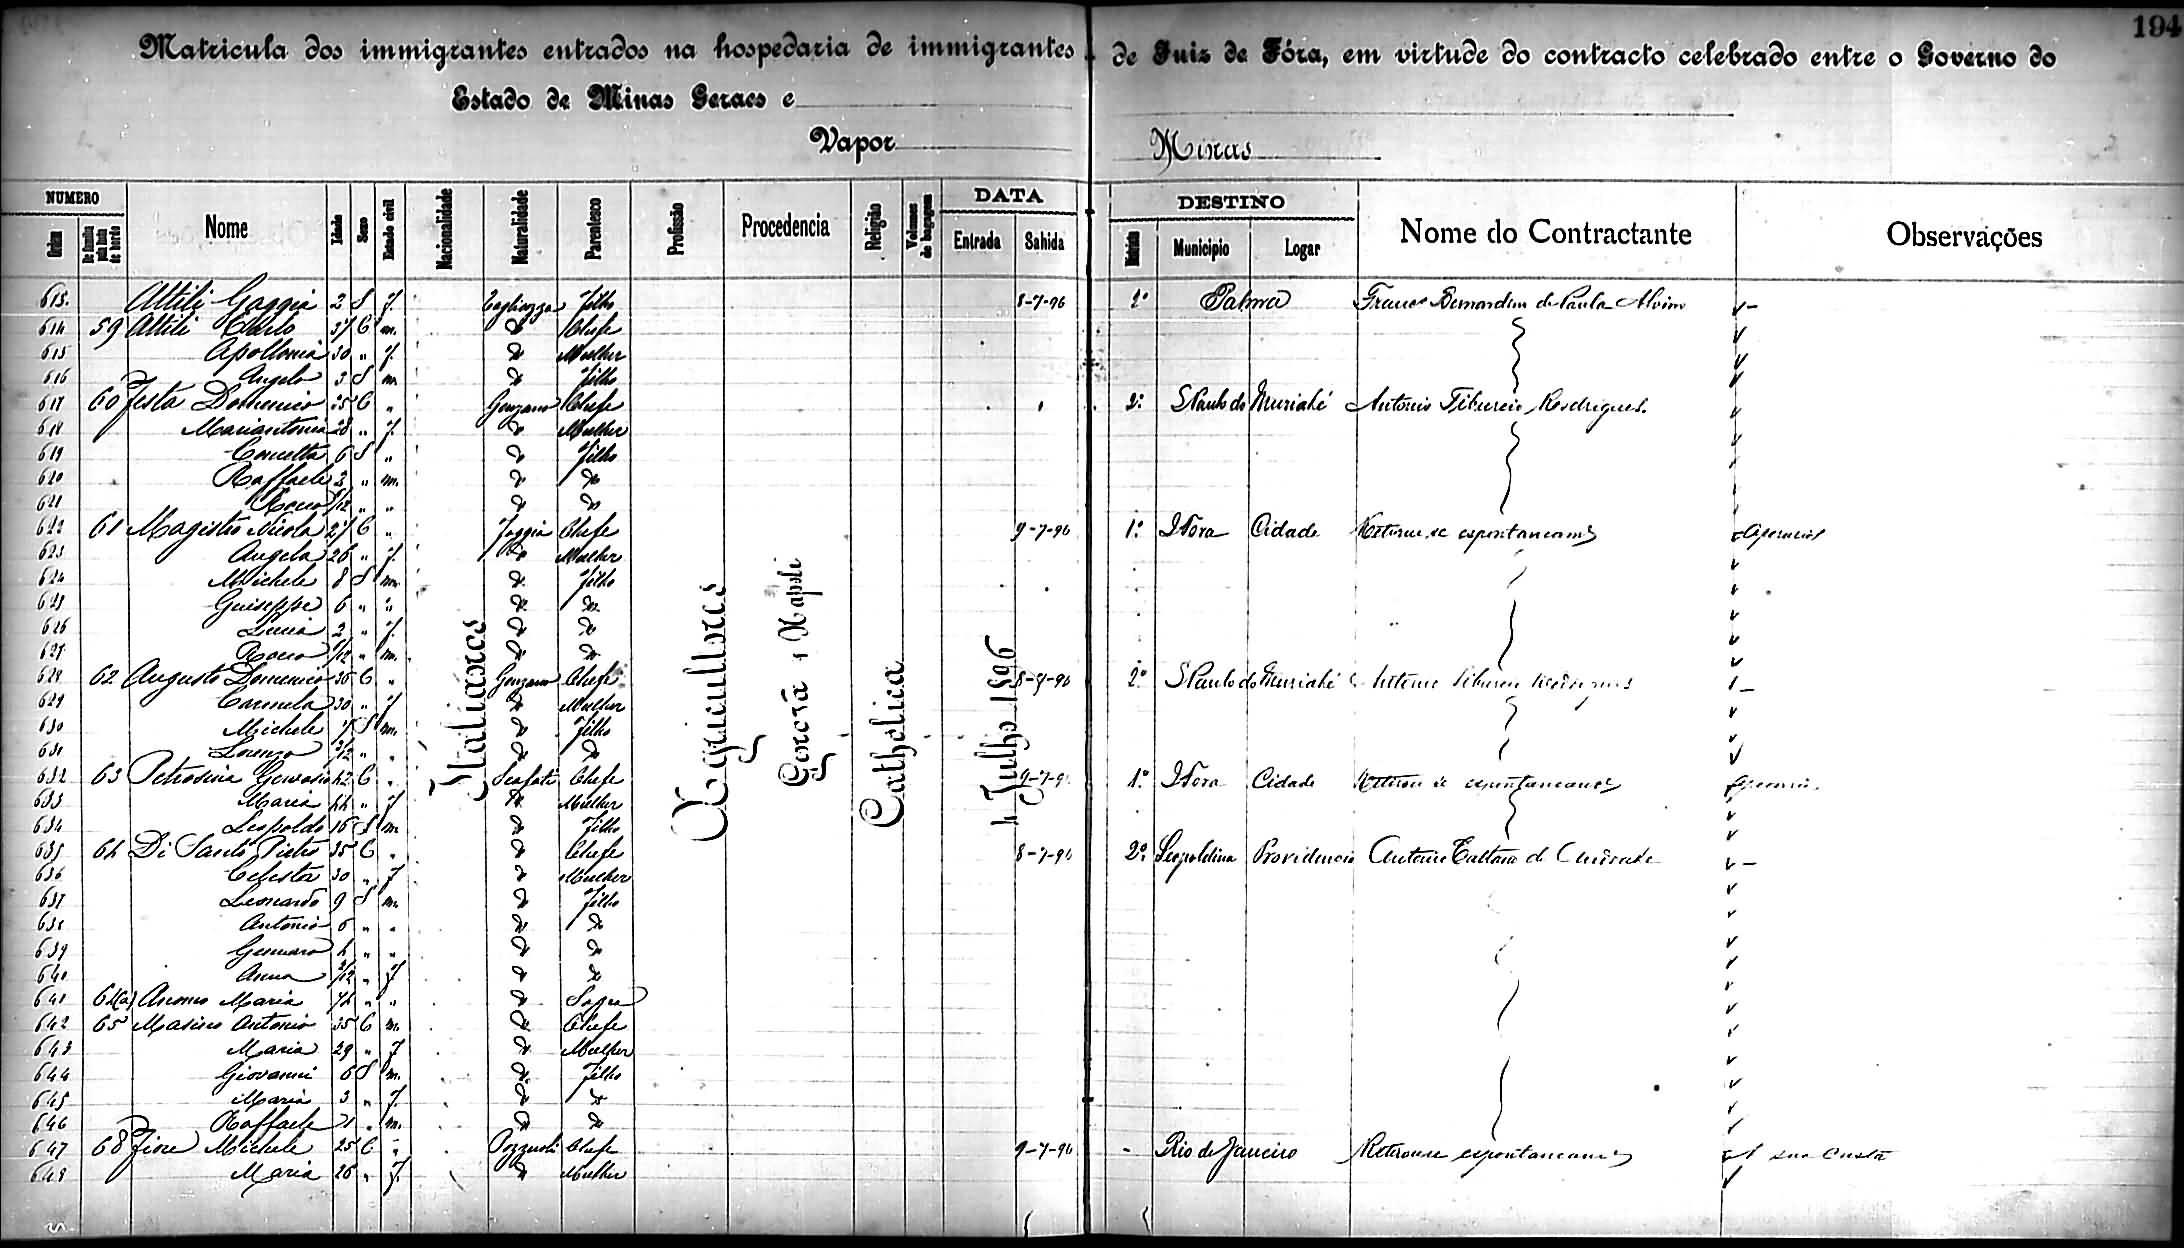 194
Matricula dos immigrantes entrados na hospedaria de immigrantes de Juiz de Fóra, em virtude do contracto celebrado entre o Governo do
Estado de Minas Geraes e
Vapor Minas
NUMERO Nome Idade Sexo Estado civil Nacionalidade Naturalidade Parentesco Profissão Procedencia Religião Volumes de bagagem DATA DESTINO Nome do Contractante Observações
Ordem De familia pela lista de bordo Entrada Sahida Districto Municipio Logar
Italianos
Agricultores
Genova e Napoli
Catholica
4 Julho 1896
613. Attili Gaggia 2 S f. Filho 8-7-96 2º Palma Franco Bernardino de Paula Alvim
614 59 Attili Carlo 37 C m. " Chefe
615 Apollonia 30 " f. " Mulher
616 Angelo 3 S m. " Filho
617 60 Testa Domenico 35 C " Genzano Chefe " 2º S Paulo do Muriahé Antonio Tiburcio Rodrigues.
618 Mariantonia 28 " f. " Mulher
619 Concetta 6 S " " Filho
620 Raffaele 3 " m. " "
621 Rocco /12 " " " "
622 61 Magistro Nicola 27 C " Foggia Chefe 9-7-96 1º J Fora Cidade Retirou-se espontaneam
623 Angela 26 " f. " Mulher
624 Michele 8 S m. " Filho
625 Guiseppe 6 " " " "
626 Lucia 2 " f. " "
627 Rocco /12 " m. " "
628 62 Augusto Domenico 36 C " Genzano Chefe 8-7-96 2º S Paulo do Muriahé Antonio Tiburcio Rodrigues
629 Carmela 30 " f " Mulher
630 Michele 7 S m. " Filho
631 Lorenzo /12 " " " "
632 63 Petrosina Gervasio 42 C " Scafati Chefe 9-7-9 1º J Fora Cidade Retirou se espontaneam
633 Maria 44 " f " Mulher
634 Leopoldo 16 S m " Filho
635 64 Di Santi Pietro 35 C " " Chefe 8-7-96 2º Leopoldina Providencia Antonio Caetano de Andrade
636 Celesta 30 " f " Mulher
637 Leonardo 9 S m. " Filho
638 Antonio 6 " " " "
639 Gennaro 4 " " " "
640 Anna /12 " f " "
641 64(a) Maria 74 " " " Sogra
642 65 Masino Antonio 35 C m. " Chefe
643 Maria 29 " f " Mulher
644 Giovanni 6 S m. " Filho
645 Maria 3 " f. " "
646 Raffaele 1 " m. " "
647 68 Fiore Michele 25 C " Pozzuoli Chefe 9-7-96 - Rio de Janeiro Retirou-se espontaneam sua custa
648 Maria 26 " f. " Mulher